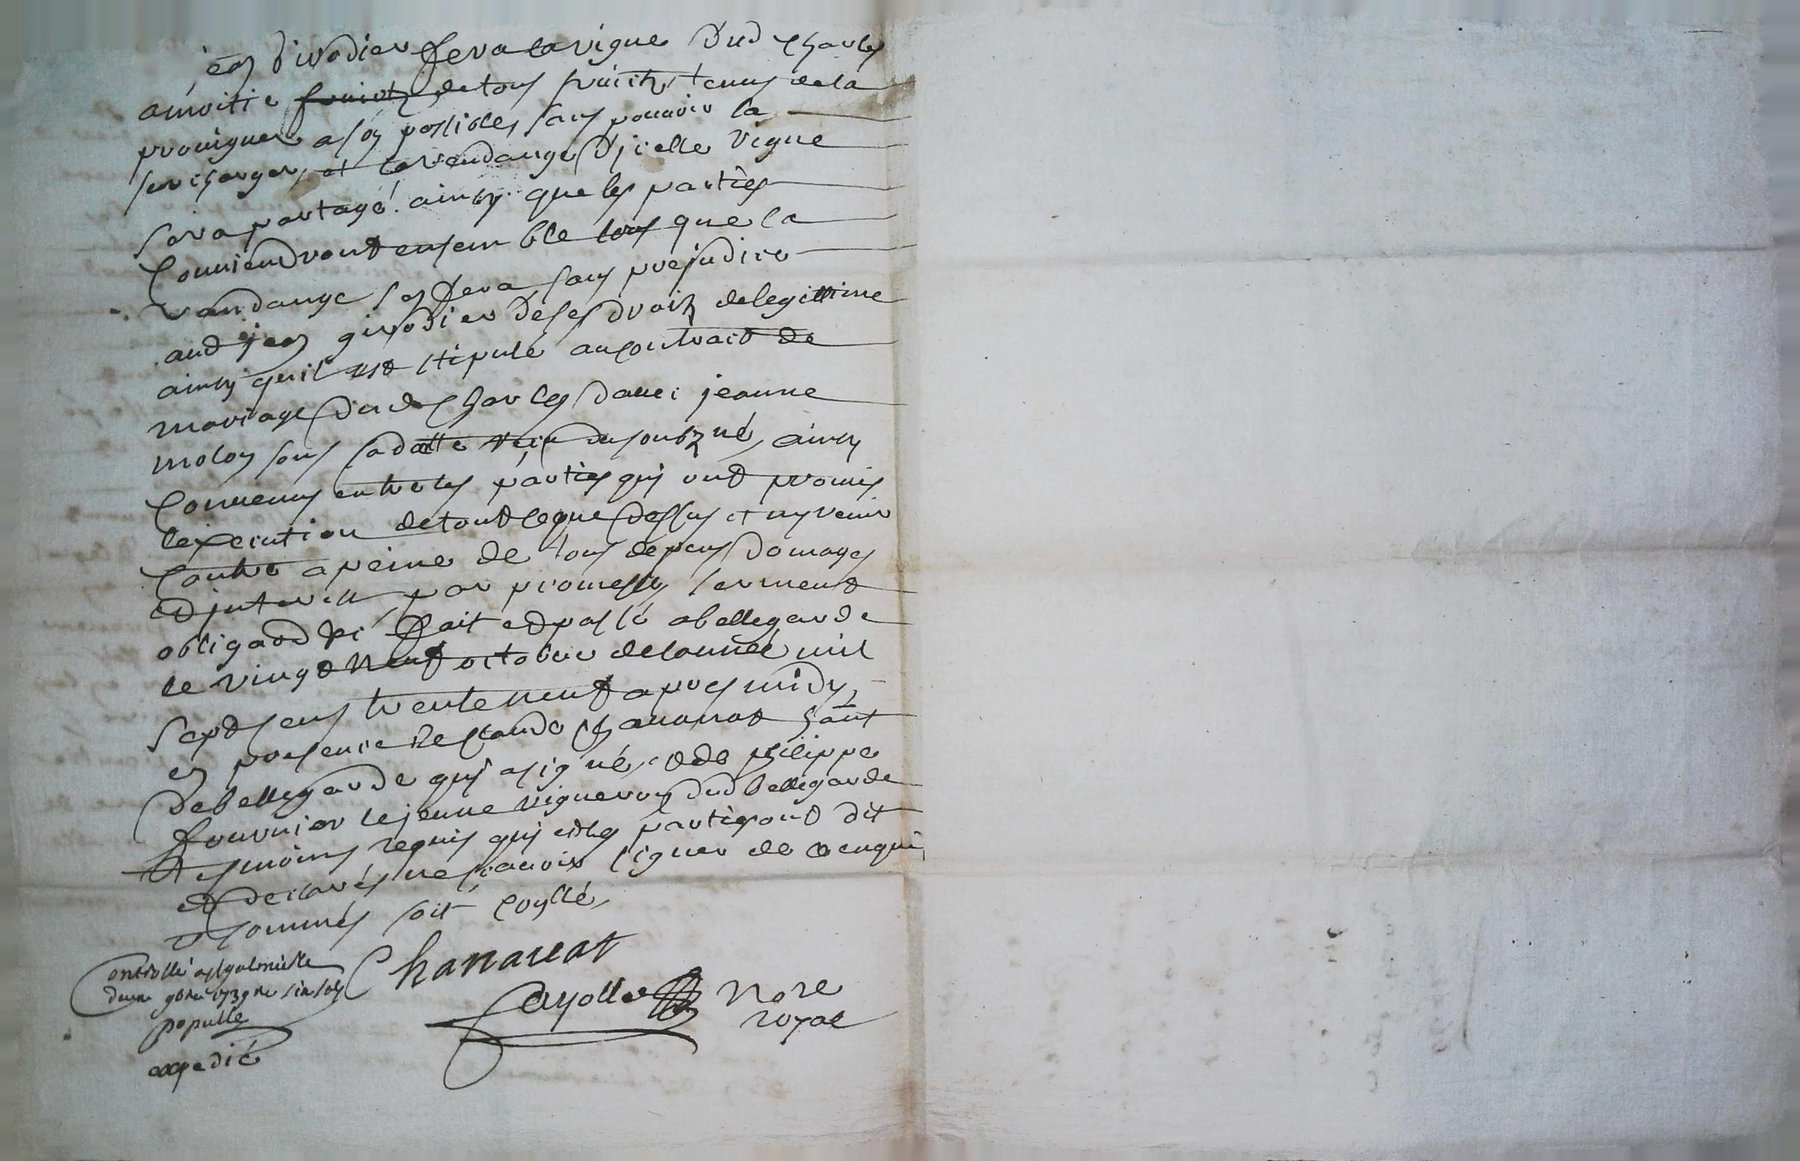 jean girodier fera la vigne dud charles
a moitié fruicts de tous fruicts tenus de la
provigner a son possible, sans pouvoir la
surcharger, et la vendange d'jcelle vigne
sera partagé ainsy que les parties
conviendront ensemble lors que la
vandange sen fera, sans prejudice
aud jean girodier de ses droits de legittime
ainsy quil est stipulé au contrait de
mariage dud charles d'avec jeanne
molon sous sa datte receu du soubzné, ainsy
convenus entre les parties qui ont promis
l'execution de tout ce que dessus et ny venir
contre a peine de tous depens domages
et jnterests par promesse serment
obligaon &c fait et passé a bellegarde
le vingt neuf octobre de lannée mil
sept cens trente neuf apres midy,
en presence de claude chanavat habt
de bellegarde qui a signé, et de philippe
fournier le jeune vigneron dud bellegarde
tesmoins requis qui et les parties ont dit
et declarés ne scavoir signer de ce enquis
et sommés soit conllé,
Chanavat
Controllé a st galmier le
9bre 1739 Re six sols
papulle
expedié
Cayolle Nore
royal